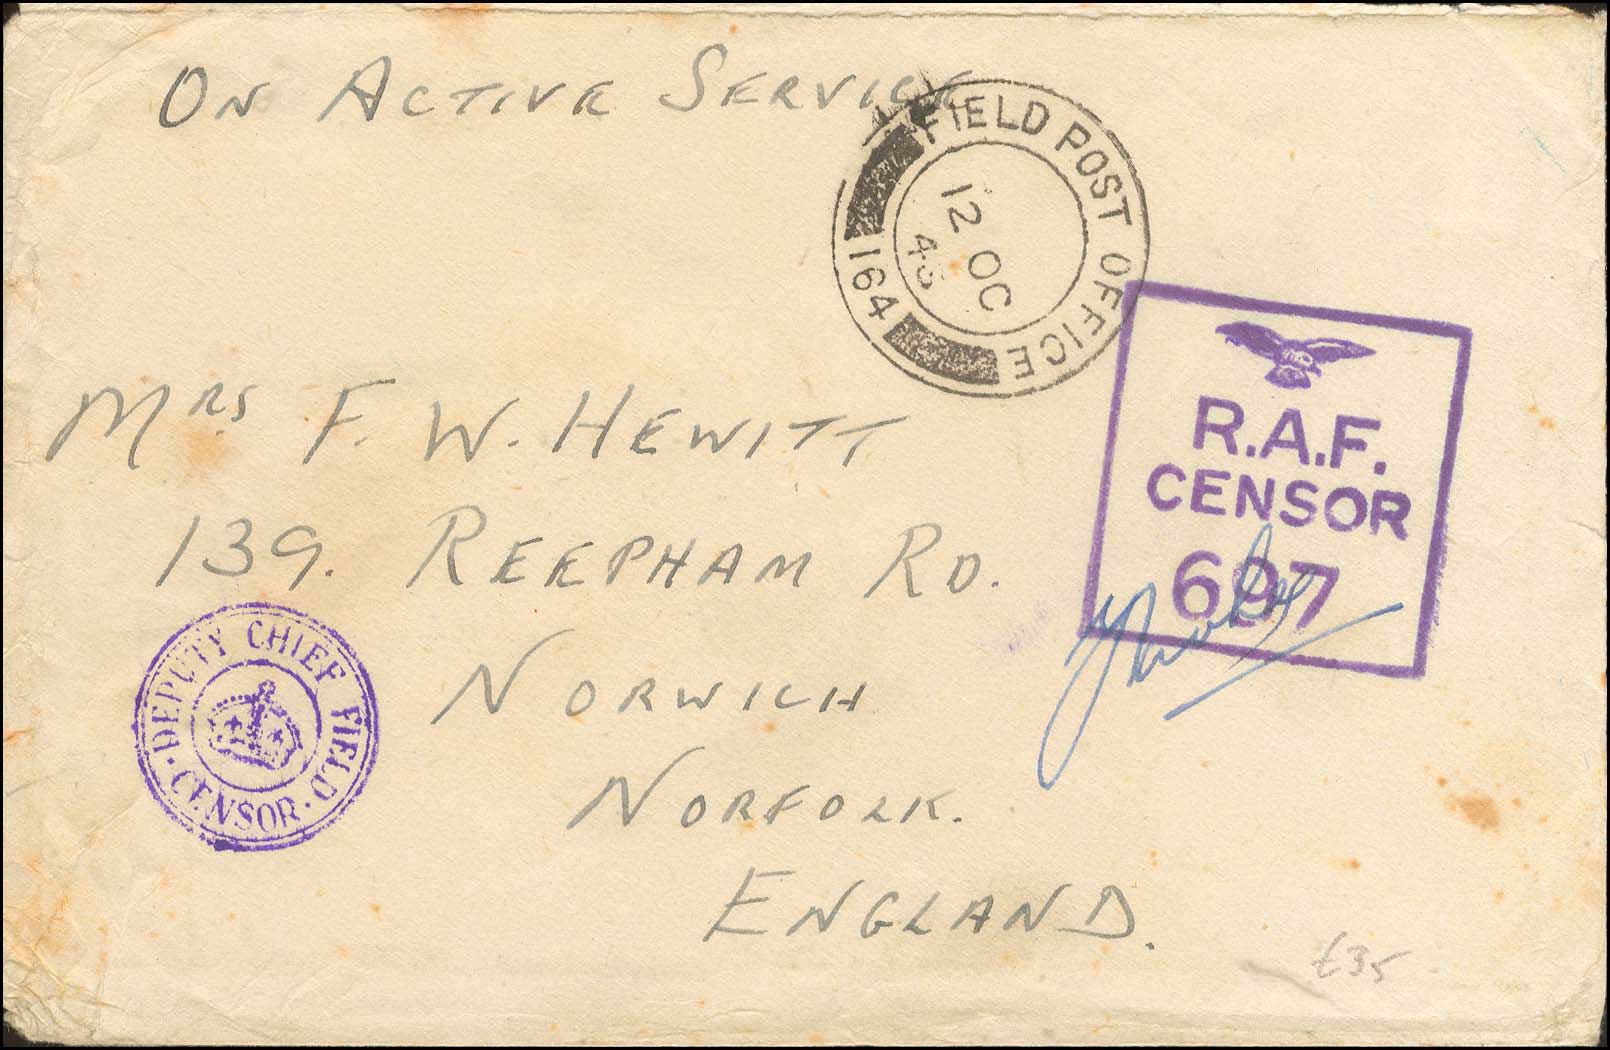 On Active Service
FIELD POST OFFICE
164
12 OC
43
R.A.F.
CENSOR
697
Mrs F. W. Hewitt
139. Reepham Rd.
Norwich
Norfolk.
England.
DEPUTY CHIEF FIELD
· CENSOR ·
£35